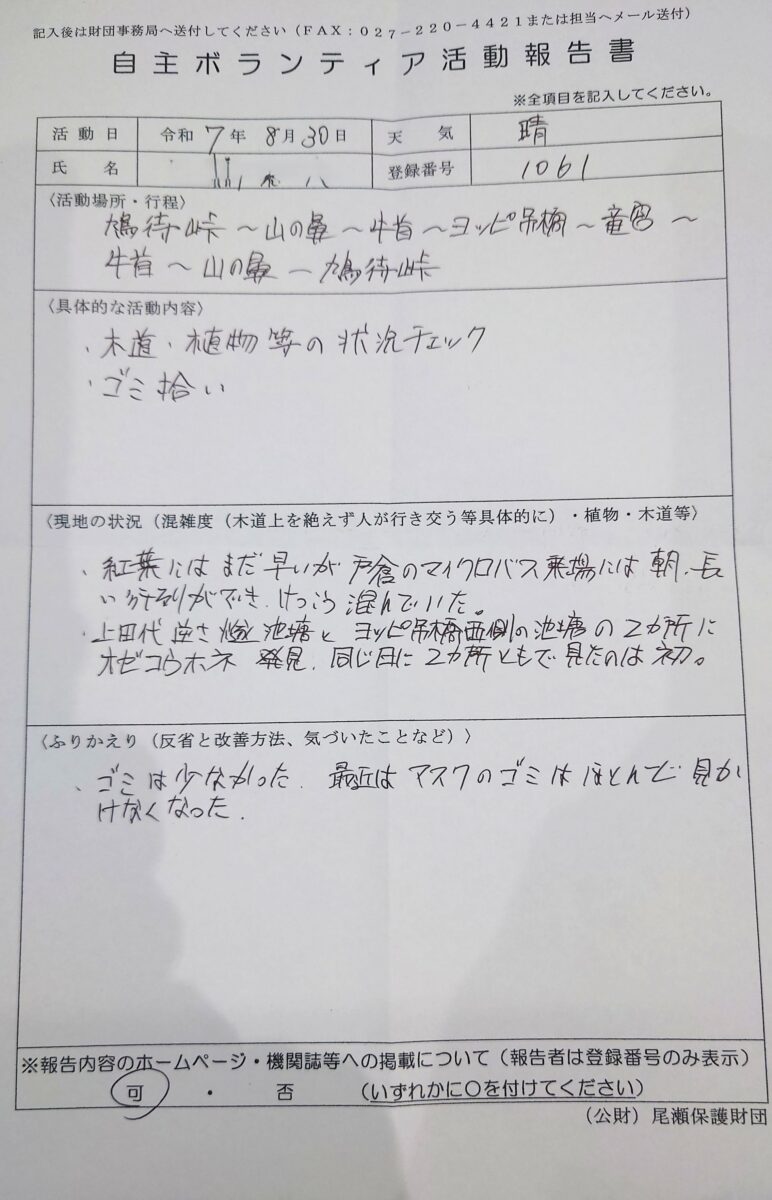 記入後は財団事務局へ送付してください（FAX：027－220－4421または担当へメール送付）
自主ボランティア活動報告書
※全項目を記入してください。
活動日 令和7年8月30日 天気 晴
氏名 登録番号 1061
〈活動場所・行程〉
鳩待峠～山の鼻～牛首～ヨッピ吊橋～竜宮～
牛首～山の鼻～鳩待峠
〈具体的な活動内容〉
・木道・植物等の状況チェック
・ゴミ拾い
〈現地の状況（混雑度（木道上を絶えず人が行き交う等具体的に）・植物・木道等〉
・紅葉にはまだ早いが戸倉のマイクロバス乗場には朝、長
い行列ができ、けっこう混んでいた。
・上田代逆さ燧池塘とヨッピ吊橋西側の池塘の2カ所に
オゼコウホネ発見、同じ日に2カ所ともで見たのは初。
〈ふりかえり（反省と改善方法、気づいたことなど）〉
・ゴミは少なかった、最近はマスクのゴミはほとんど見か
けなくなった、
※報告内容のホームページ・機関誌等への掲載について（報告者は登録番号のみ表示）
可 ・ 否 （いずれかに○を付けてください）
（公財）尾瀬保護財団